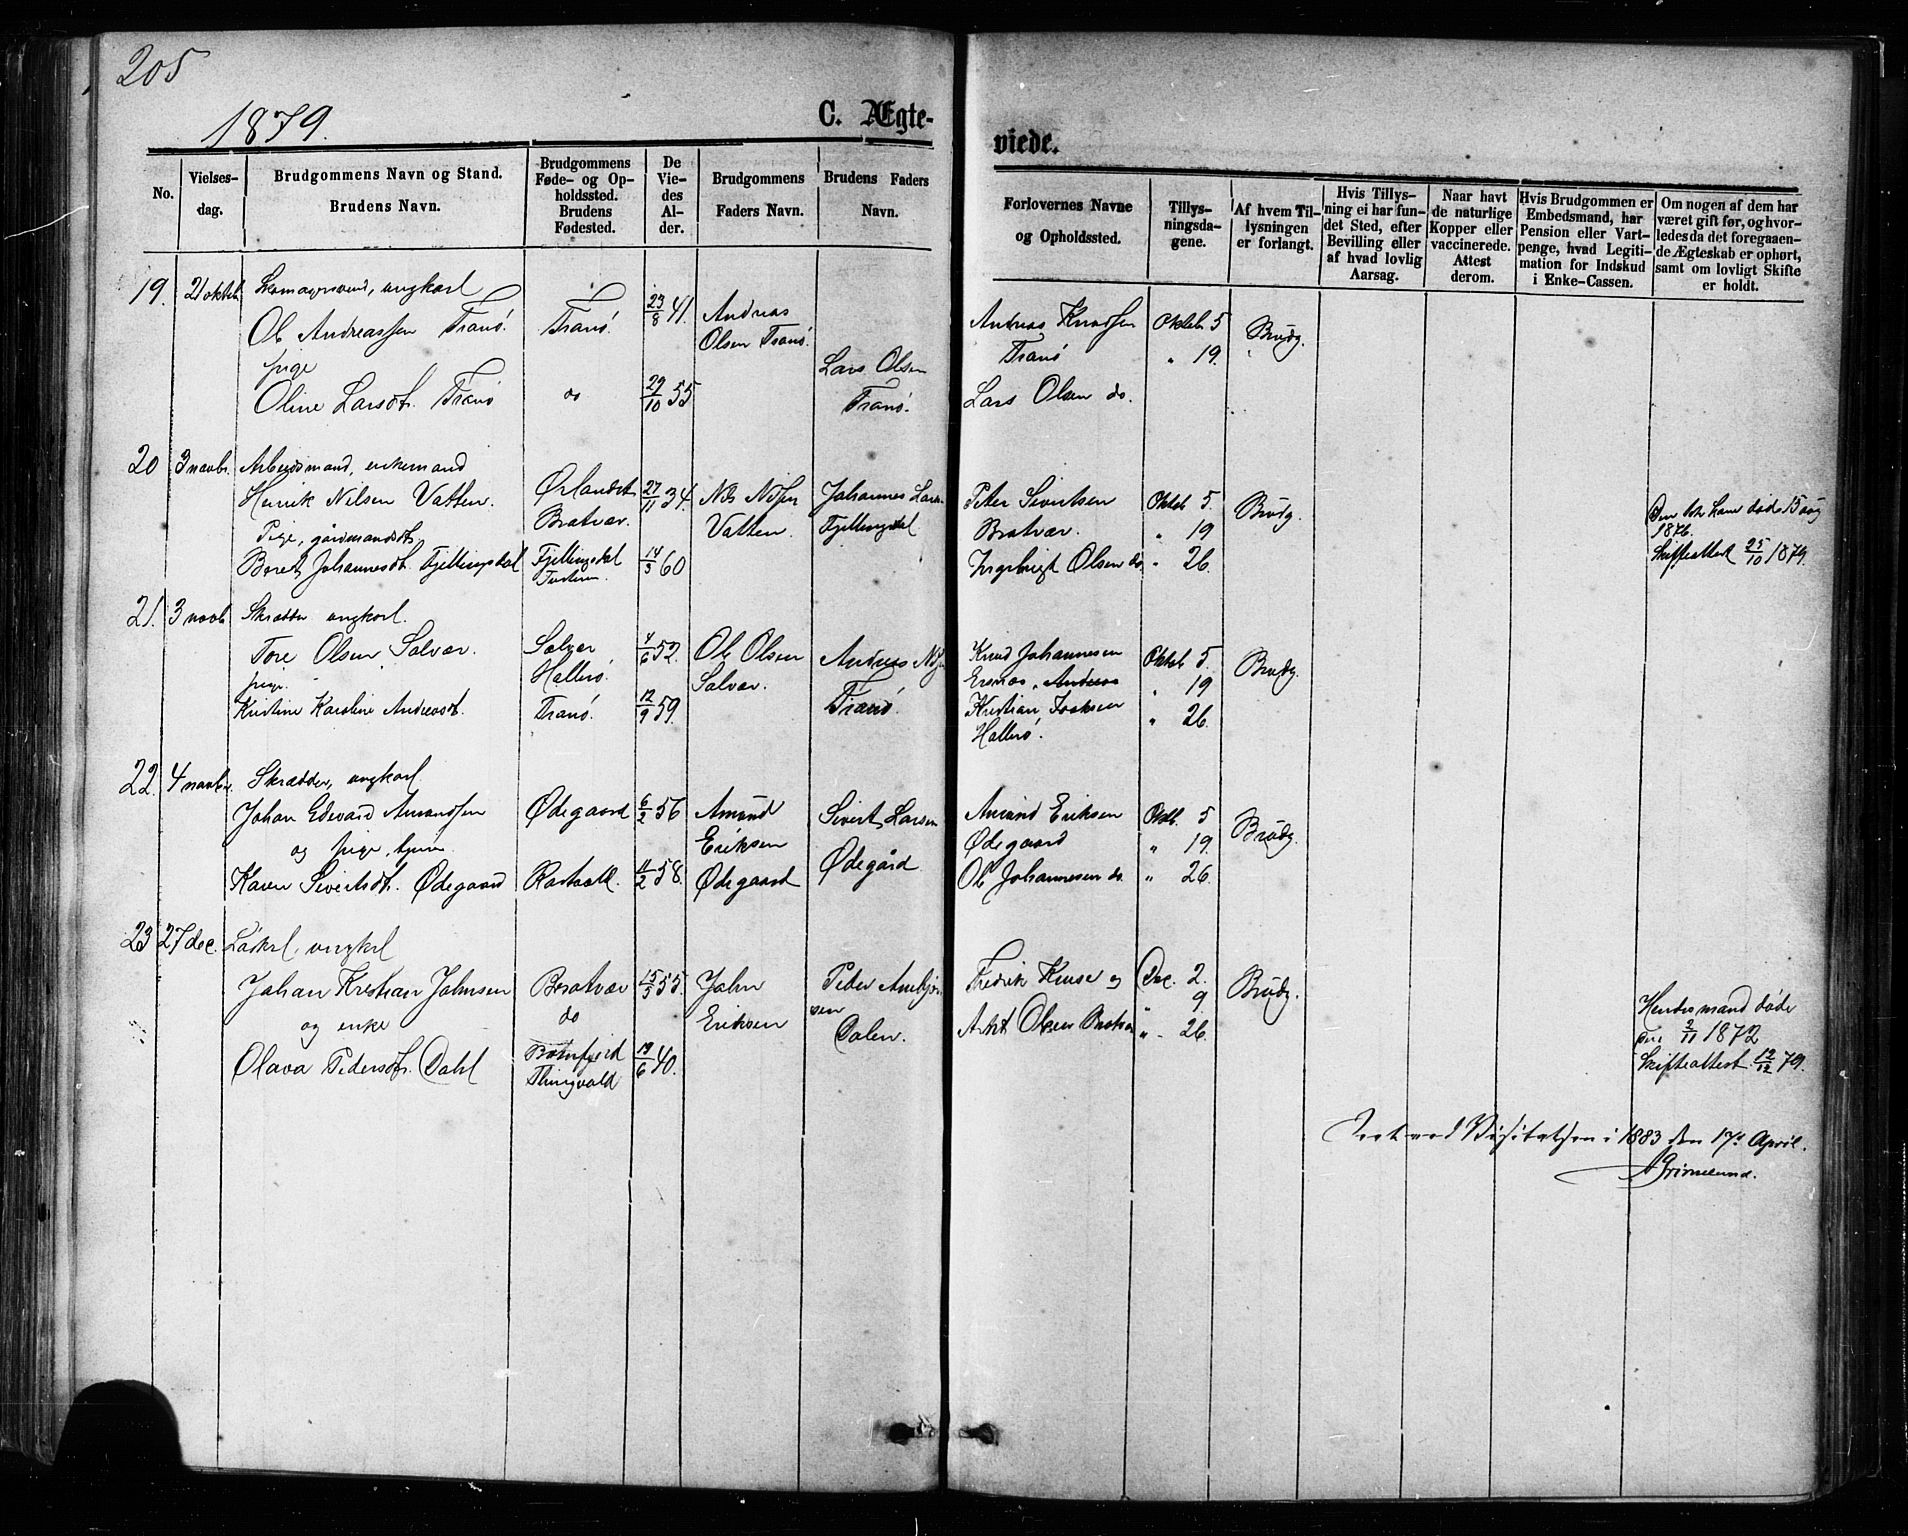 205
1879.
C. Ægte-
viede.
No.
Vielses-
dag.
Brudgommens Navn og Stand.
Brudens Navn.
Brudgommens
Føde- og Op-
holdssted.
Brudens
Fødested.
De
Vie-
des
Al-
der.
Brudgommens
Faders Navn.
Brudens Faders
Navn.
Forlovernes Navne
og Opholdssted.
Tillys-
ningsda-
gene.
Af hvem Til-
lysningen
er forlangt.
Hvis Tillys-
ning ei har fun-
det Sted, efter
Bevilling eller
af hvad lovlig
Aarsag.
Naar havt
de naturlige
Kopper eller
vaccinerede.
Attest
derom.
Hvis Brudgommen er
Embedsmand, har
Pension eller Vart-
penge, hvad Legiti-
mation for Indskud
i Enke-Cassen.
Om nogen af dem har
været gift før, og hvor-
ledes da det foregaaen-
de Ægteskab er ophørt,
samt om lovligt Skifte
er holdt.
19. 21 oktbr. Skomagersvend, ungkarl
Ole Andreassen Tranø. Tranø. 23/8 41. Andreas
Olsen Tranø.
Andreas Knudsen Oktob 5 Brudg.
Tranø " 19.
pige Lars Olsen
Oline Larsdt. Tranø do 29/10 55 Tranø. Lars Olsen do.
20 3 novbr. Arbeidsmand, enkemand
Henrik Nilsen Vatten. Ørlandet 27/11 34. Nils Nilsen Johannes Larsen
Bratvær. Vatten. Fjellingsdal
Peter Sivertsen Oktob 5. Brudg.
Bratvær. " 19
Pige, gårdmandsdt.
Beret Johannesdt. Fjellingsdal Fjellingsdal 14/3 60
Ingebrigt Olsen do. " 26.
døde 15 aug
1876.
Skifteattest 25/10 1879.
21. 3 novb Skrædder ungkarl.
Tore Olsen Salvær. Salvær 4/6 52. Ole Olsen Andreas Nilsen
Hallerø. Salvær. Tranø.
Knud Johannesen Oktob 5. Brudg
" 19
pige.
Kristine Karoline Andreasdt. Tranø. 12/9 59.
Kristian Isaksen " 26.
Hallerø.
22. 4 novbr. Skrædder, ungkarl.
Johan Edevard Amundsen Ødegaard 6/2 56 Amund Sivert Larsen
og pige, tjen. Eriksen Ødegård
Karen Sivertsdt. Ødegaard 11/2 58. Ødegaard
Amund Eriksen Oktb. 5 Brudg.
Ødegaard " 19.
Ole Johannesen do. " 26.
23 27 dec. ungkarl
Johan Kristian Johnsen Bratvær 15/3 55. John Peder
og enke do Eriksen Dalen.
Olava Pedersdt. Dahl Thingvold 19/6 40.
Fredrik Kruse og Dec. 2. Brudg.
" 9
Olsen " 26.
Hendes mand døde
2/11 1872
Skifteattest 12/12 79.
Visitatsen i 1883 den 17de April.
AGrimelund.